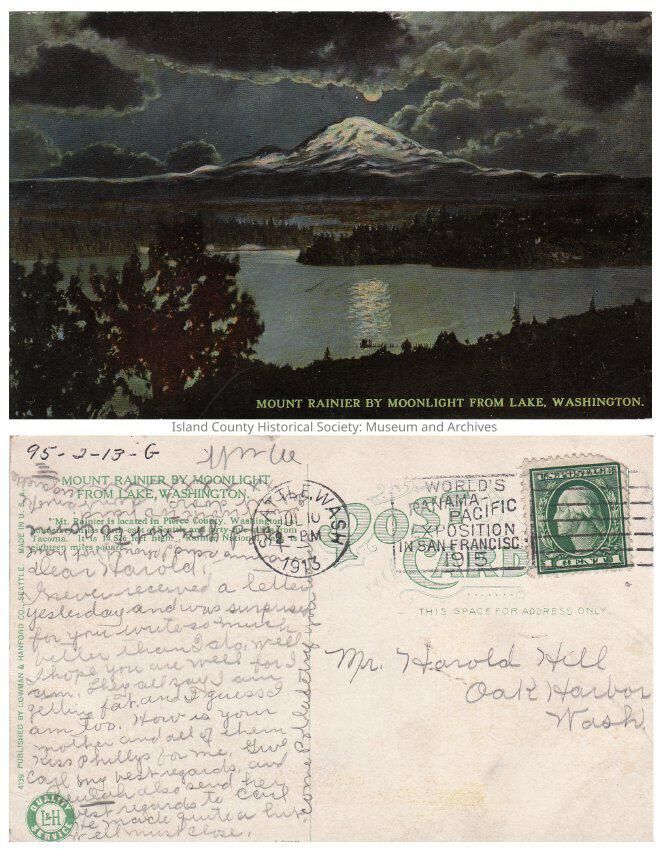 MOUNT RAINIER BY MOONLIGHT FROM LAKE, WASHINGTON.
Island County Historical Society: Museum and Archives
95-2-13-G
MOUNT RAINIER BY MOONLIGHT
FROM LAKE, WASHINGTON.
"Mt. Rainier is located in Pierce County, Washington,
miles
Tacoma. It is 14,526 feet high. Rainier National
eighteen miles square.
Dear Harold,
I never received a letter
yesterday and was surprised
for you write so much
better than I do. Well
I hope you are well for I
am. They all say I am
getting fat, and I guess I
am too. How is your
mother and all of them
Kiss Phillys for me. Give
Carl my best regards, and
Beulah also send her
best regards to Carl
He made quite a hit.
Well must close.
4139 PUBLISHED BY LOWMAN & HANFORD CO., SEATTLE. MADE IN U.S.A.
QUALITY
L&H
SERVICE
SEATTLE, WASH
JUL 10
PM
1913
WORLD'S
PANAMA-
PACIFIC
EXPOSITION
IN SAN FRANCISCO
1915
POST
CARD
U.S. POSTAGE
1 CENT 1
THIS SPACE FOR ADDRESS ONLY.
Mr. Harold Hill
Oak Harbor
Wash.